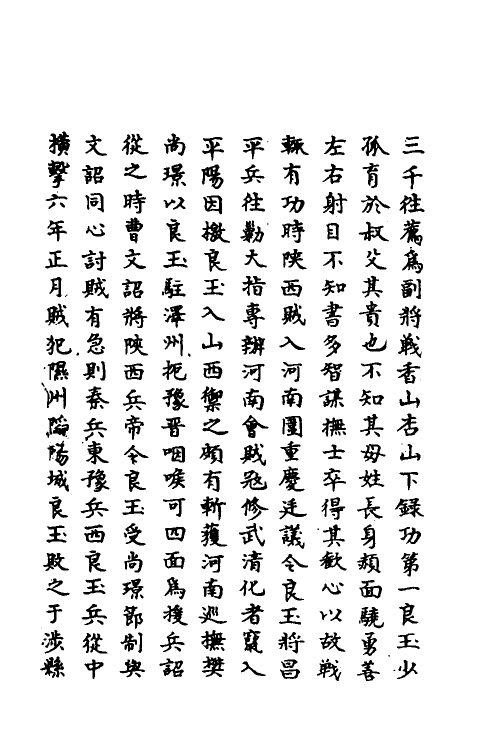 三千往薦為副將戰香山杏山下錄功第一良玉少
孤育於叔父其貴也不知其母姓長身赬面驍勇善
左右射目不知書多智謀撫士卒得其歡心以故戰
輒有功時陝西賊入河南圍重慶廷議令良玉將昌
平兵往勦大指專辦河南會賊冦修武清化者竄入
平陽因檄良玉入山西禦之頗有斬獲河南巡撫樊
尚璟以良玉駐澤州扼豫晉咽喉可四面為援兵詔
從之時曹文詔將陝西兵帝令良玉受尚璟節制與
文詔同心討賊有急則秦兵東豫兵西良玉兵從中
橫擊六年正月賊犯隰州陷陽城良玉敗之于涉縣